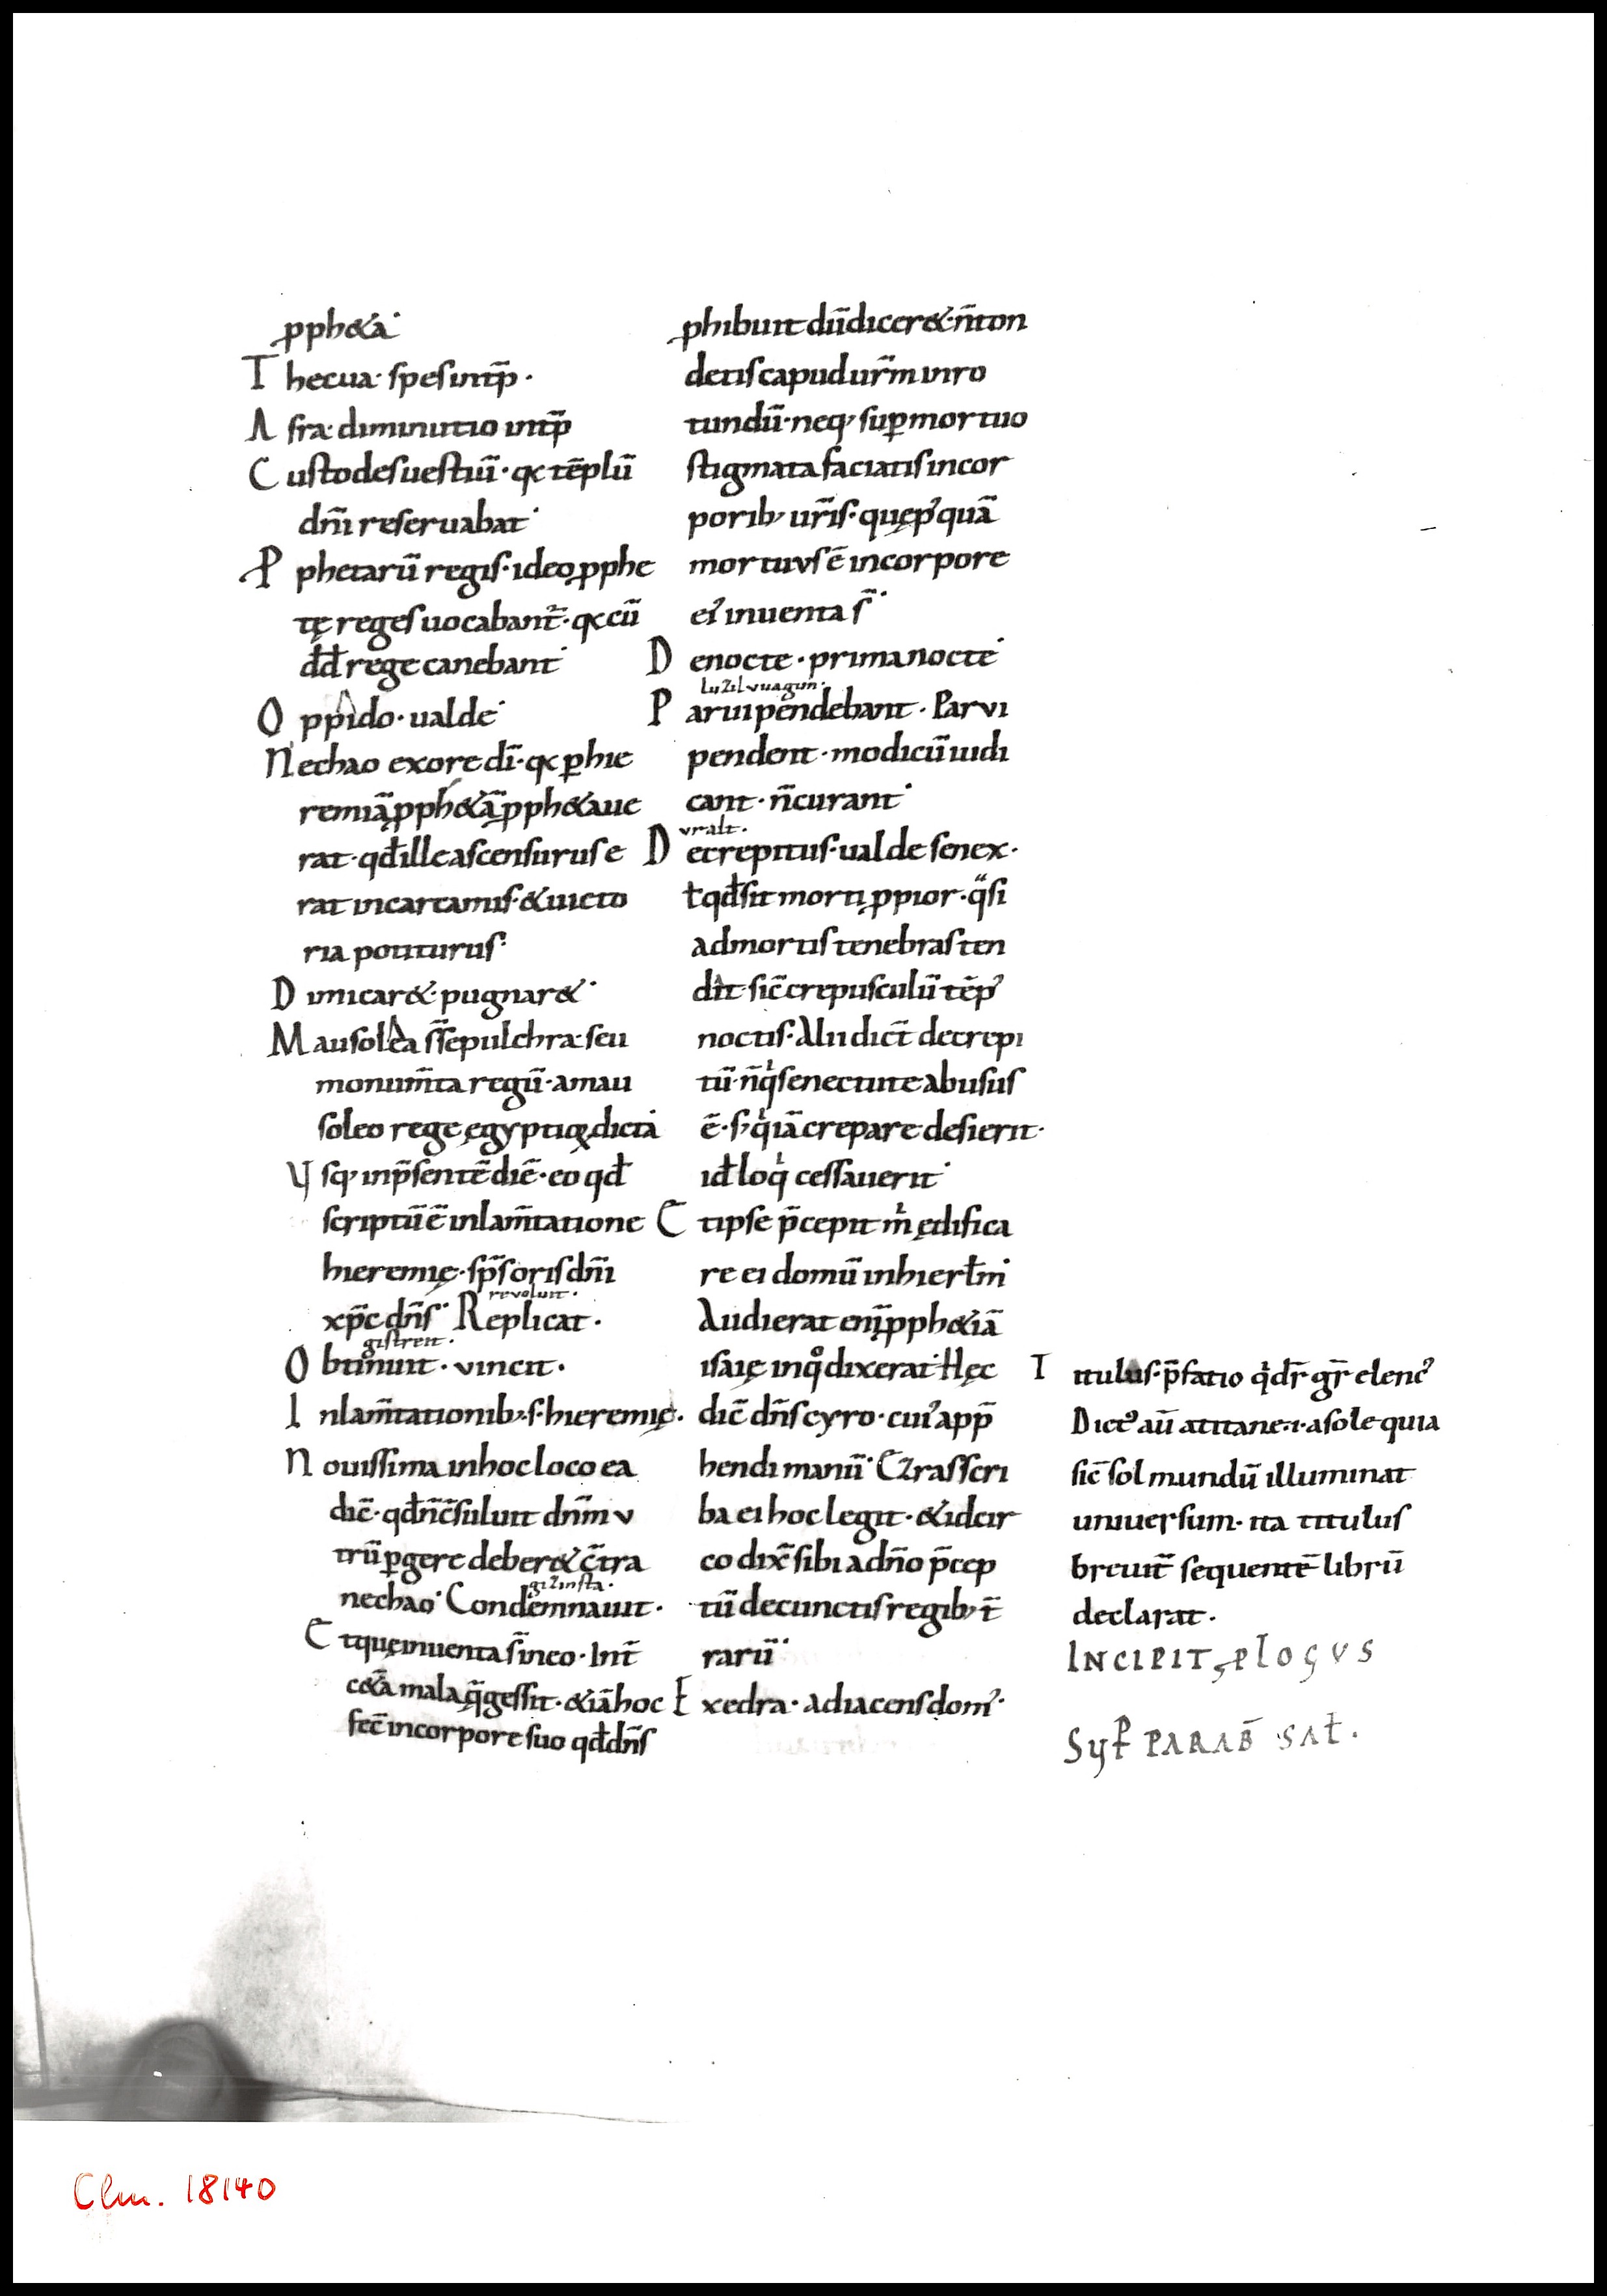 ꝓph&a·
Thecua· spes int̄p̄·
Asra· diminutio int̄p̄
Custodes uestiū· qꝛ tēplū
dn̄i reseruabat·
Ꝓphetarū regis· ideo ꝓphe
tę reges uocabant̄· qꝛ cū
dd̄ rege canebant·
Oppido· ualde·
Nechao ex ore dī· qꝛ ꝑ hie
remiā ꝓph&ā ꝓph&aue
rat· qđ ille ascensurus e
rat in carcamis· & uicto
ria potiturus·
Dimicar&· pugnar&·
Mausolea s̄ sepulchra· seu
monum̄ta regū· a mau
soleo rege ęgyptioꝝ dicta
Vsq; in p̄sentē diē· eo qđ
scriptū ē in lam̄tatione
hieremię· sp̄s oris dn̄i
xp̄c dn̄s· Replicat·
revoluit·
Obtinuit· vincit·
gistreit·
In lam̄tationib; ·s· hieremię·
Nouissima in hoc loco ea
dic̄· qđ n̄ c̄suluit dn̄m v
trū ꝑgere deber& c̄tra
nechao· Condemnauit·
gizinsta·
Et quę inuenta s̄ in eo· Int̄
c&ā mala q̄ gessit· & iā hoc
fec̄ in corpore suo qđ dn̄s
ꝓhibuit dū dicer&· n̄ ton
detis caput ur̄m in ro
tundū· neq; suꝑ mortuo
stigmata faciatis in cor
porib; ur̄is· quę pꝰ quā
mortuus ē in corpore
eiꝰ inuenta s̄·
De nocte· prima nocte·
luzil vuagun·
Paruipendebant· Parvi
pendent· modicū iudi
cant· n̄ curant·
vralt·
Decrepitus· ualde senex·
ł qđ sit morti ꝓpior· q̈si
ad mortis tenebras ten
dit· sic̄ crepusculū tēpꝰ
noctis· Alii dict̄ decrepi
tū· n̄ qͥ senectute abusus
ē· s; qͥ iā crepare desierit·
id ł loqͥ cessauerit·
Et ipse p̄cepit mͥ ędifica
re ei domū in hierł̄m·
Audierat enī ꝓph&iā
isaię in qͦ dixerat· Hęc
dic̄ dn̄s cyro· cuiꝰ app̄
hendi manū· Ezras scri
ba ei hoc legit· & idcir
co dix̄ sibi a dn̄o p̄cep
tū de cunctis regib; t̄
rarū·
Exedra· adiacens domꝰ·
Titulus· p̄fatio qͥ dr̄ gr̄ elencꝰ
Dictꝰ aū a titane ·i· a sole quia
sic̄ sol mundū illuminat
uniuersum· ita titulus
breuit̄ sequentē librū
declarat·
INCIPIT ꝓloGVS
Suꝑ PARAB̄ SAł·
Clm. 18140